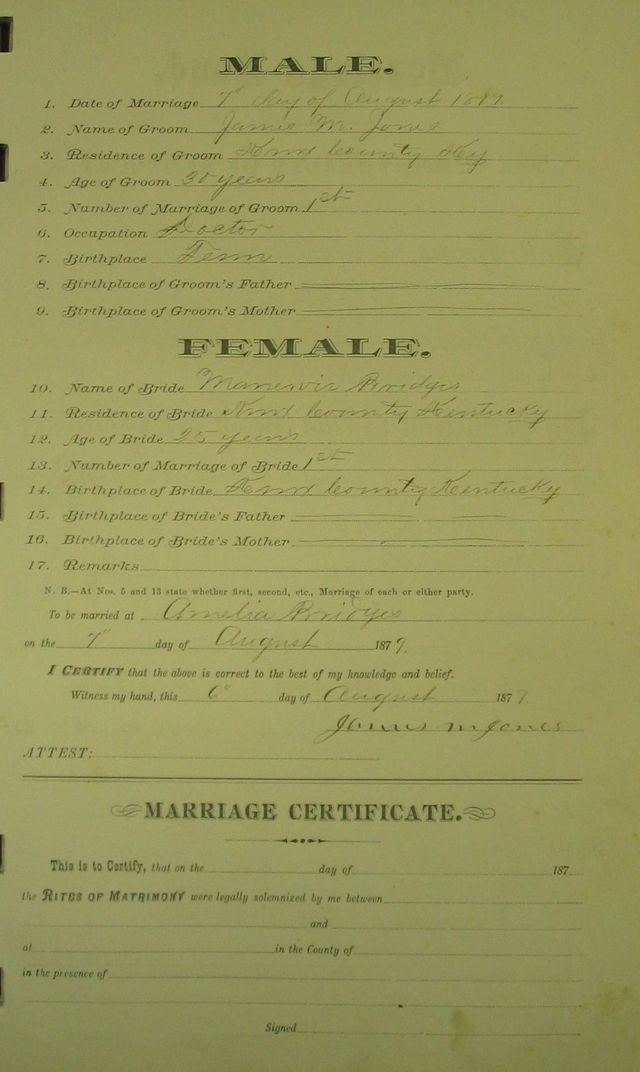 MALE.
1. Date of Marriage 7" day of August 1879
2. Name of Groom James M. Jones
3. Residence of Groom Knox County Ky
4. Age of Groom 30 years
5. Number of Marriage of Groom 1st
6. Occupation Doctor
7. Birthplace Tenn
8. Birthplace of Groom's Father
9. Birthplace of Groom's Mother
FEMALE.
10. Name of Bride Bridges
11. Residence of Bride Knox County Kentucky
12. Age of Bride 25 years
13. Number of Marriage of Bride 1st
14. Birthplace of Bride Knox County Kentucky
15. Birthplace of Bride's Father
16. Birthplace of Bride's Mother
17. Remarks
N. B.—At Nos. 5 and 13 state whether first, second, etc., Marriage of each or either party.
To be married at Amelia Bridges
on the 7" day of August 1879.
I CERTIFY that the above is correct to the best of my knowledge and belief.
Witness my hand, this 6" day of August 1879
James M Jones
ATTEST:
MARRIAGE CERTIFICATE.
This is to Certify, that on the day of 187
the RITES OF MATRIMONY were legally solemnized by me between
and
at in the County of
in the presence of
Signed